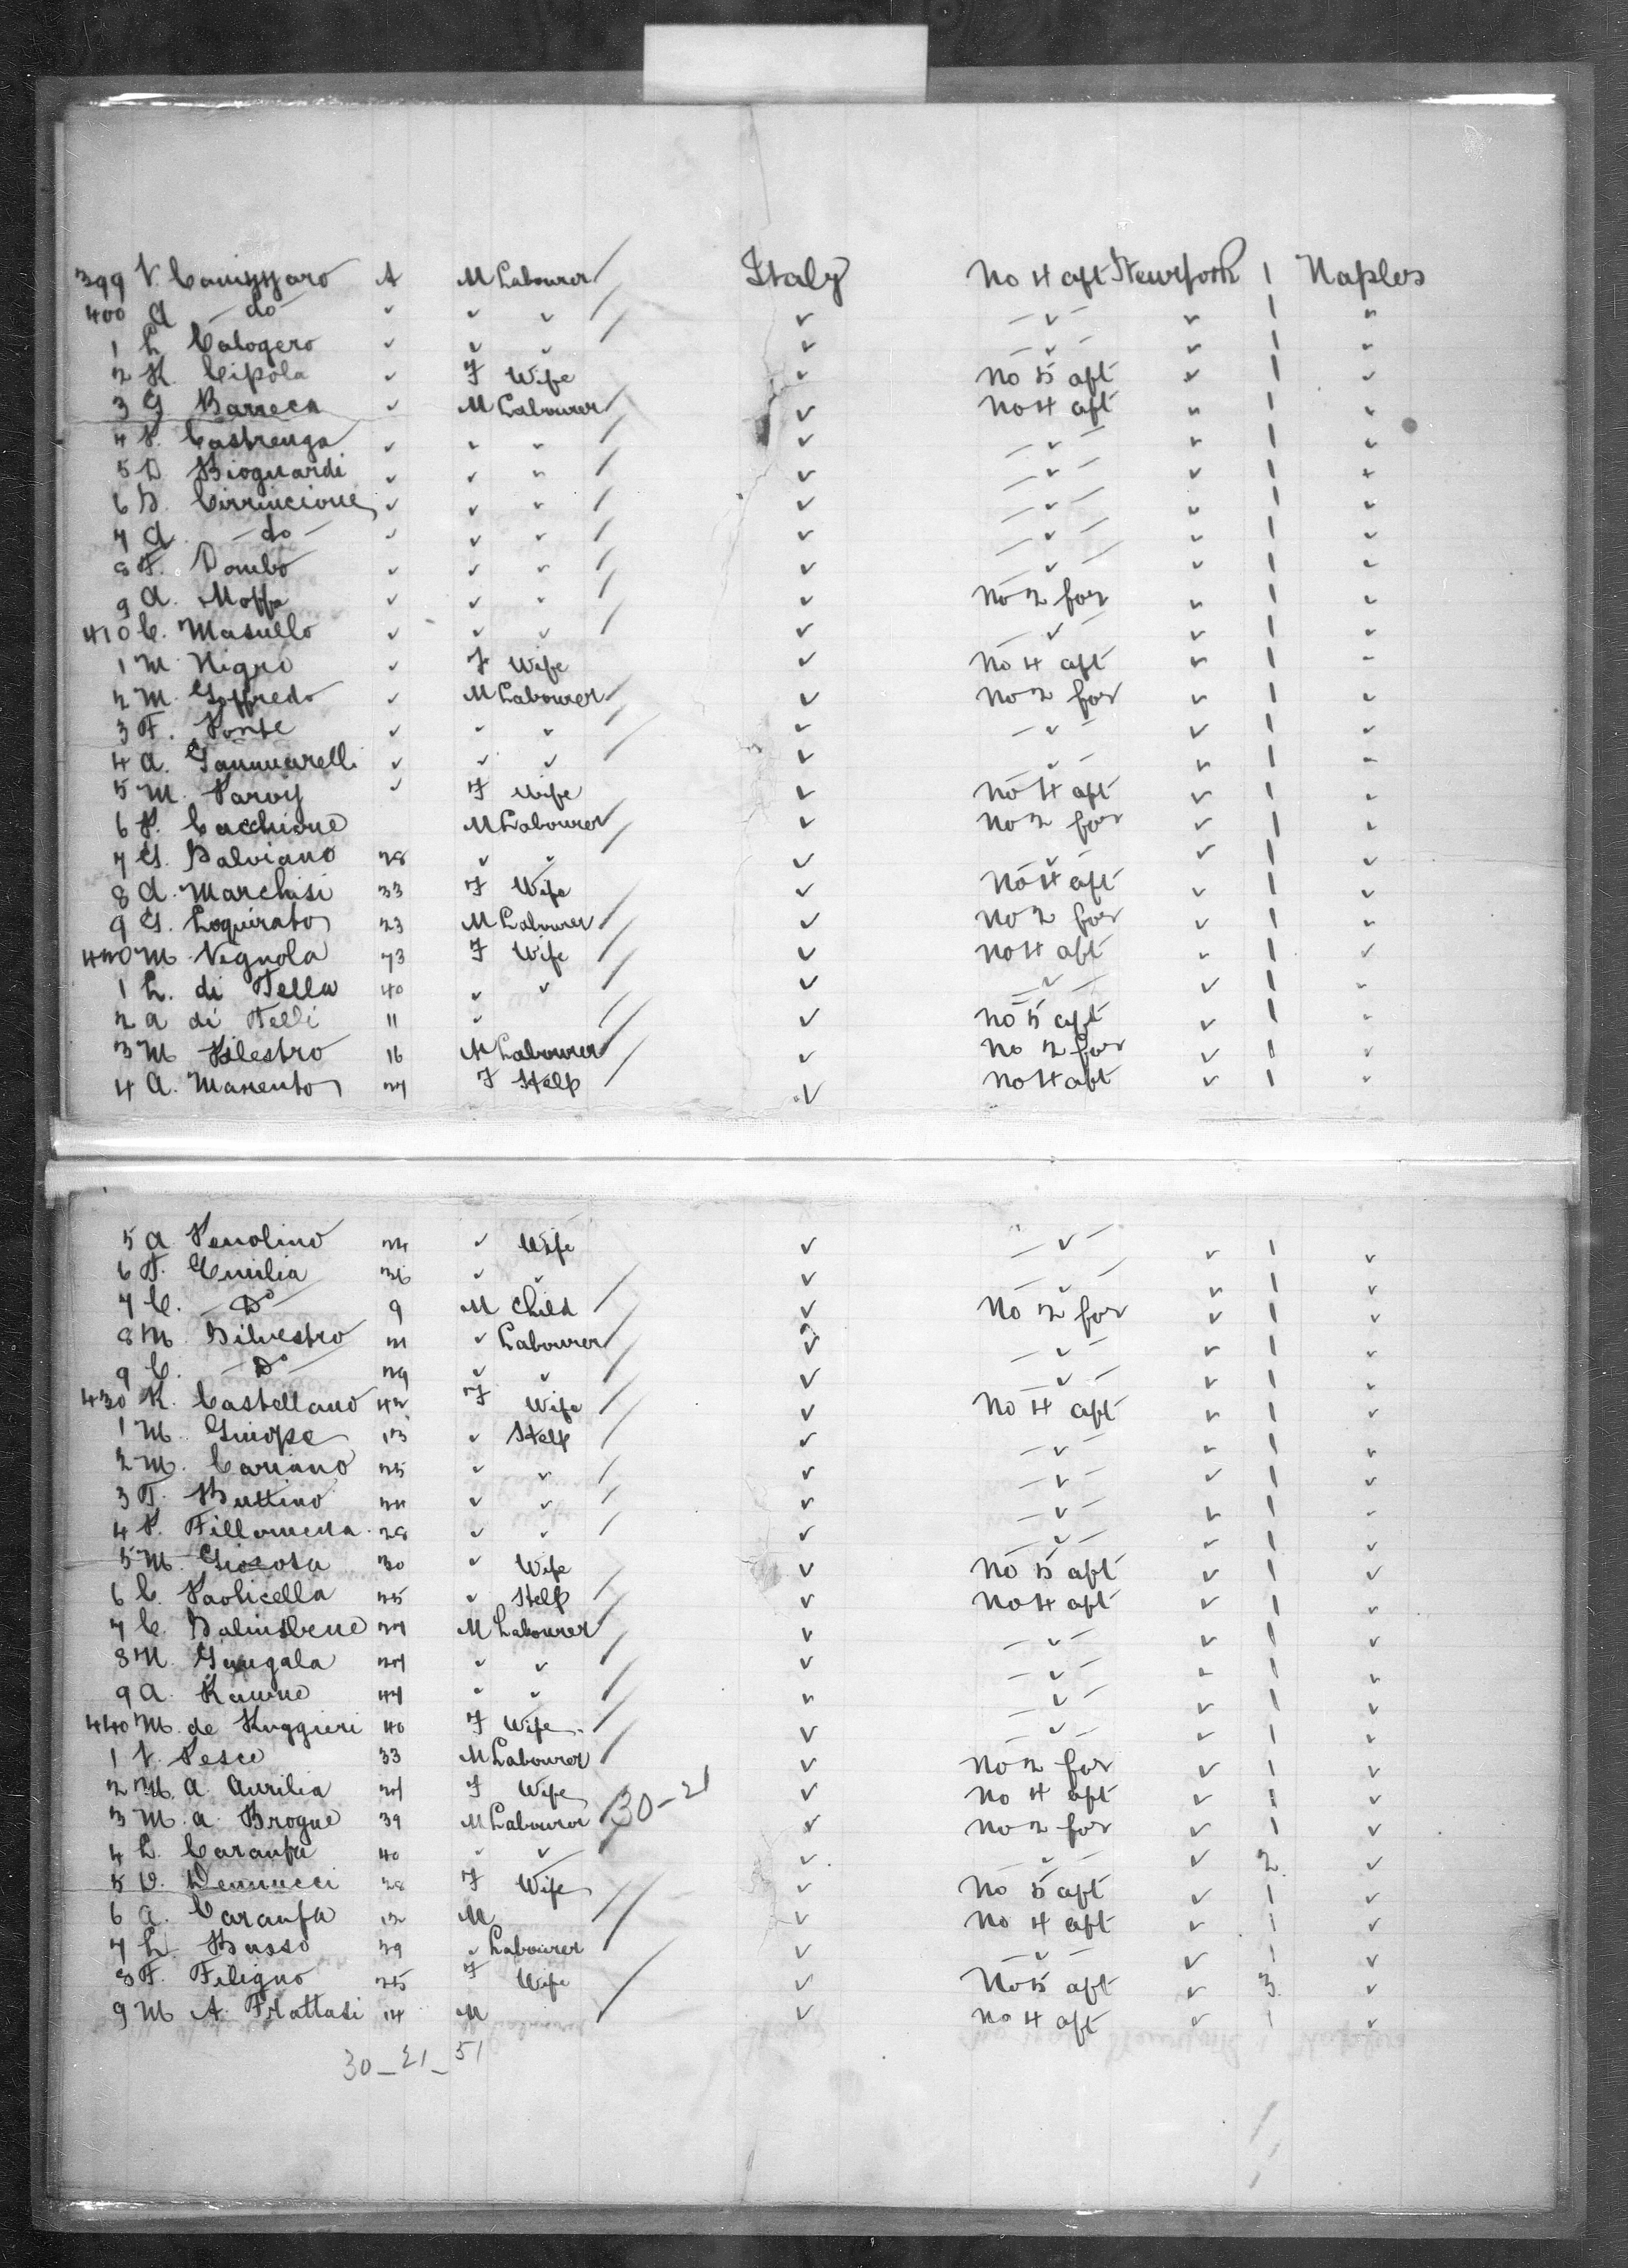 399 V. Canizzaro A M Labourer Italy No 4 aft Newyork 1 Naples
400 A — do — ✓ ✓ ✓ ✓ — ✓ — ✓ 1 ✓
1 L Calogero ✓ ✓ ✓ ✓ — ✓ — ✓ 1 ✓
2 R. Cipola ✓ F Wife ✓ No 5 aft ✓ 1 ✓
3 G Barreca ✓ M Labourer ✓ No 4 aft ✓ 1 ✓
4 P. Castrenga ✓ ✓ ✓ ✓ — ✓ — ✓ 1 ✓
5 D Bioguardi ✓ ✓ ✓ ✓ — ✓ — ✓ 1 ✓
6 S. Cirrincione ✓ ✓ ✓ ✓ — ✓ — ✓ 1 ✓
7 A — do — ✓ ✓ ✓ ✓ — ✓ — ✓ 1 ✓
8 F. Dombo ✓ ✓ ✓ ✓ — ✓ — ✓ 1 ✓
9 A. Moffa ✓ ✓ ✓ ✓ No 2 for ✓ 1 ✓
410 C. Masullo ✓ ✓ ✓ ✓ — ✓ — ✓ 1 ✓
1 M Nigro ✓ F Wife ✓ No 4 aft ✓ 1 ✓
2 M. Goffredo ✓ M Labourer ✓ No 2 for ✓ 1 ✓
3 F. Ponte ✓ ✓ ✓ ✓ — ✓ — ✓ 1 ✓
4 A. Iannuarelli ✓ ✓ ✓ ✓ — ✓ — ✓ 1 ✓
5 M. ✓ F Wife ✓ No 4 aft ✓ 1 ✓
6 P. Cacchione M Labourer ✓ No 2 for ✓ 1 ✓
7 G. Salviano 28 ✓ ✓ ✓ — ✓ — ✓ 1 ✓
8 A. Marchisi 33 F Wife ✓ No 4 aft ✓ 1 ✓
9 G. Loquirato 23 M Labourer ✓ No 2 for ✓ 1 ✓
420 M. Vignola 73 F Wife ✓ No 4 aft ✓ 1 ✓
1 L. di Tella 40 ✓ ✓ ✓ — ✓ — ✓ 1 ✓
2 A di Telli 11 ✓ ✓ No 5 aft ✓ 1 ✓
3 M 16 M Labourer ✓ No 2 for ✓ 1 ✓
4 A. Manento 27 F Help ✓ No 4 aft ✓ 1 ✓
5 A ✓ Wife ✓ — ✓ — ✓ 1 ✓
6 F. Emilia 36 ✓ ✓ ✓ — ✓ — ✓ 1 ✓
7 C. — Do — 9 M Child ✓ No 2 for ✓ 1 ✓
8 M. Silvestro 21 ✓ Labourer ✓ — ✓ — ✓ 1 ✓
9 C. — Do — 29 ✓ ✓ ✓ — ✓ — ✓ 1 ✓
430 R. Castellano 42 F Wife ✓ No 4 aft ✓ 1 ✓
1 M. ✓ Help ✓ — ✓ — ✓ 1 ✓
2 M. Cariano 25 ✓ ✓ ✓ — ✓ — ✓ 1 ✓
3 T. Buttino ✓ ✓ ✓ — ✓ — ✓ 1 ✓
4 P. Fillomena 28 ✓ ✓ ✓ — ✓ — ✓ 1 ✓
5 M. Giocosa 30 ✓ Wife ✓ No 5 aft ✓ 1 ✓
6 C. Paolicella 25 ✓ Help ✓ No 4 aft ✓ 1 ✓
7 C. Salinsbene 27 M Labourer ✓ — ✓ — ✓ 1 ✓
8 M. Gungala 27 ✓ ✓ ✓ — ✓ — ✓ 1 ✓
9 A. 47 ✓ ✓ ✓ — ✓ — ✓ 1 ✓
440 M. de Ruggieri 40 F Wife ✓ — ✓ — ✓ 1 ✓
1 V. Pesce 33 M Labourer ✓ No 2 for ✓ 1 ✓
2 M. A. Aurilia 27 F Wife ✓ No 4 aft ✓ 1 ✓
30 - 21
3 M. a. Brogne 39 M Labourer ✓ No 2 for ✓ 1 ✓
4 L. Caranfa 40 ✓ ✓ ✓ — ✓ — ✓ 2 ✓
5 V. Dennucci 28 F Wife ✓ No 5 aft ✓ 1 ✓
6 A. Caranfa 12 M ✓ No 4 aft ✓ 1 ✓
7 L Basso 29 ✓ Labourer ✓ — ✓ — ✓ 1 ✓
8 F. Filigno 25 F Wife ✓ No 5 aft ✓ 3 ✓
9 M A. Frattasi 14 M ✓ No 4 aft ✓ 1 ✓
30 - 21 - 51